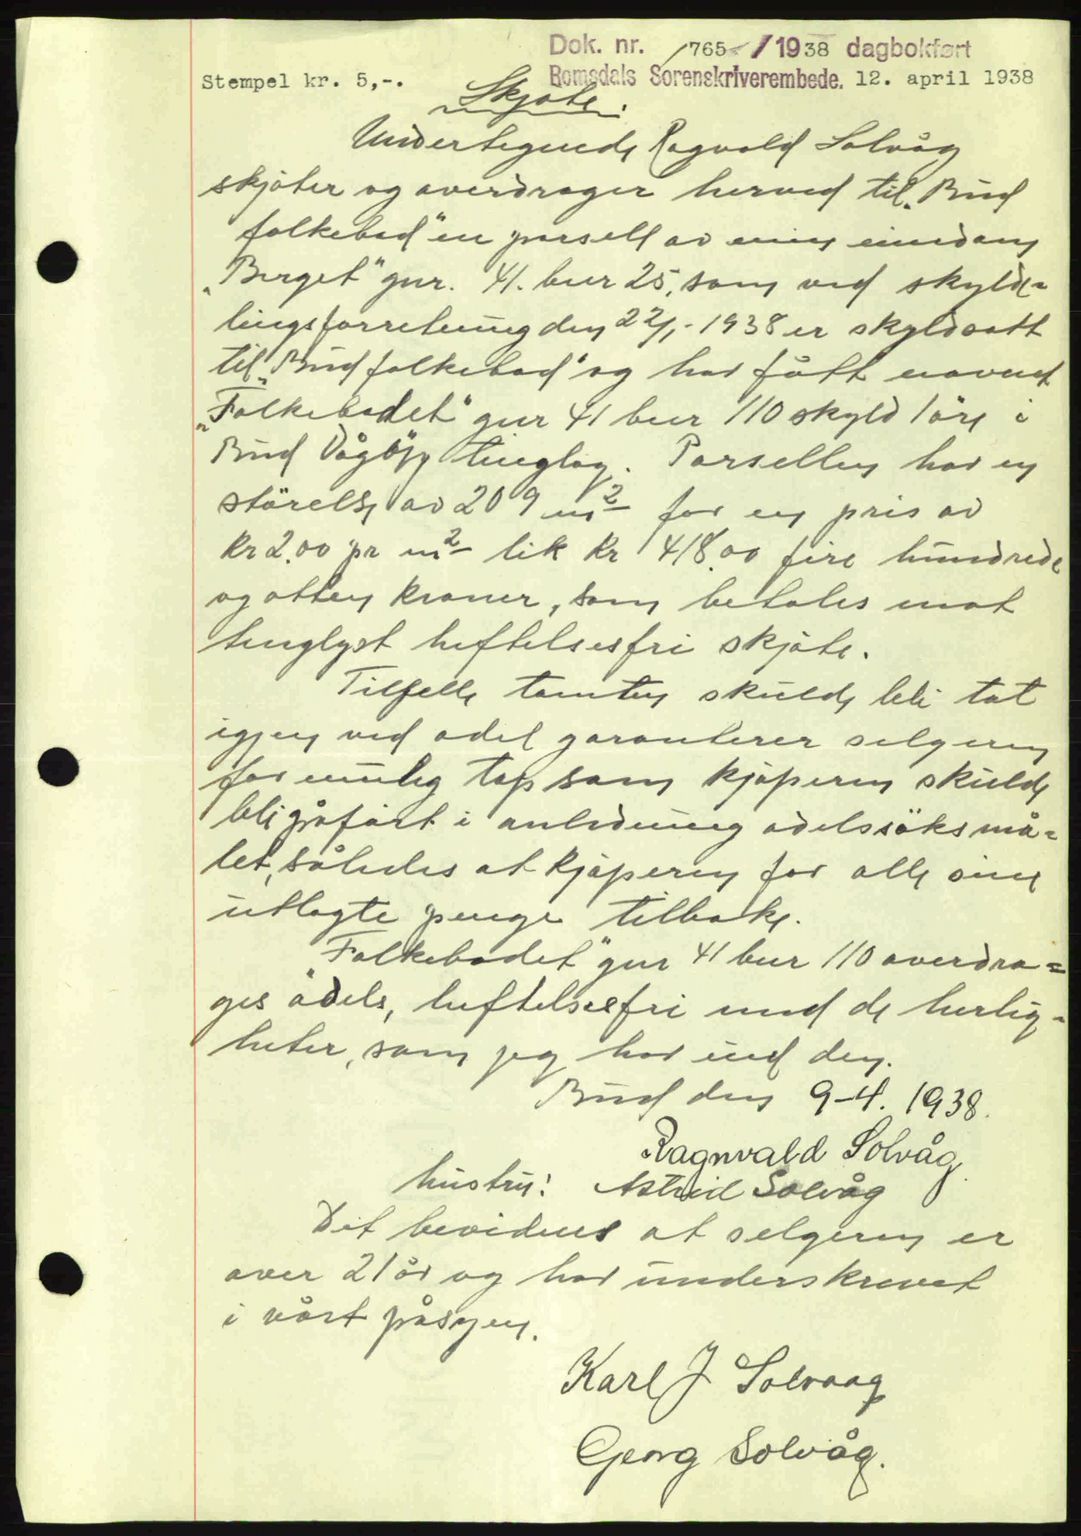 Dok. nr. 765 / 1938 dagbokført
Stempel kr. 5,-. Romsdals Sorenskriverembede. 12. april 1938
Skjøte.
Undertegnede Ragvald Solvåg
skjøter og overdrager herved til „Bud
folkebad" en parsell av min eiendom
„Berget" gnr. 41. bnr 25, som ved skyld=
lingsforretning den 22/1-1938 er skyldsatt
til „Bud folkebad" og har fått navnet
„Folkebadet" gnr 41 bnr 110 skyld 1 øre i
Bud Vågøy tinglag. Parsellen har en
størelse av 209 m2 for en pris av
kr 2.00 pr m2 lik kr 418.00 fire hundrede
og atten kroner, som betales mot
tinglyst heftelsesfri skjøte.
Tilfelle tomten skulde bli tat
igjen ved odel garanterer selgeren
for mulig tap som kjøperen skulde
bli påført i anledning odelssöksmå=
let, således at kjøperen får alle sine
utlagte penge tilbake.
„Folkebadet" gnr 41 bnr 110 overdra=
ges odels, heftelsesfri med de herlig=
heter, som jeg har eied den.
Bud den 9-4. 1938.
Ragnvald Solvåg.
hustru: Astrid Solvåg
Det bevidnes at selgeren er
over 21 år og har underskrevet
i vårt påsyn.
Karl J Solvaag
Georg Solvåg.